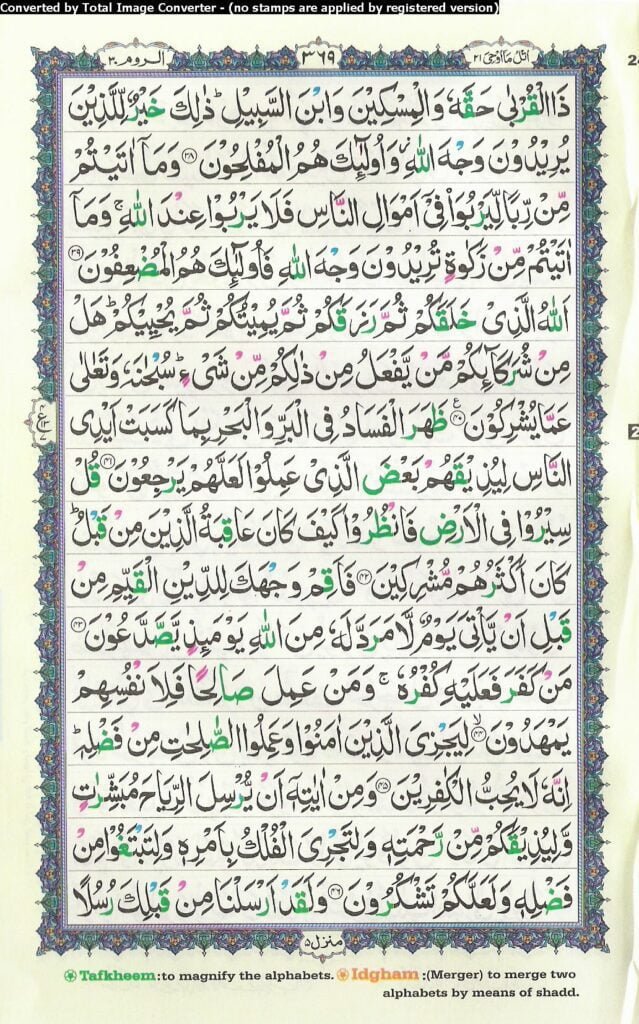 Converted by Total Image Converter - (no stamps are applied by registered version)
اتل ما اوحی ۲۱
۳۶۹
الروم ۳۰
ذَا الْقُرْبٰى حَقَّهٗ وَالْمِسْكِيْنَ وَابْنَ السَّبِيْلِ ؕ ذٰلِكَ خَيْرٌ لِّلَّذِيْنَ
يُرِيْدُوْنَ وَجْهَ اللّٰهِ ۫ وَاُولٰٓئِكَ هُمُ الْمُفْلِحُوْنَ ۳۸ وَمَاۤ اٰتَيْتُمْ
مِّنْ رِّبًا لِّيَرْبُوَا۠ فِيْۤ اَمْوَالِ النَّاسِ فَلَا يَرْبُوْا عِنْدَ اللّٰهِ ۚ وَمَاۤ
اٰتَيْتُمْ مِّنْ زَكٰوةٍ تُرِيْدُوْنَ وَجْهَ اللّٰهِ فَاُولٰٓئِكَ هُمُ الْمُضْعِفُوْنَ ۳۹
اَللّٰهُ الَّذِيْ خَلَقَكُمْ ثُمَّ رَزَقَكُمْ ثُمَّ يُمِيْتُكُمْ ثُمَّ يُحْيِيْكُمْ ؕ هَلْ
مِنْ شُرَكَآئِكُمْ مَّنْ يَّفْعَلُ مِنْ ذٰلِكُمْ مِّنْ شَيْءٍ ؕ سُبْحٰنَهٗ وَتَعٰلٰى
عَمَّا يُشْرِكُوْنَ ۴۰ ع ظَهَرَ الْفَسَادُ فِي الْبَرِّ وَالْبَحْرِ بِمَا كَسَبَتْ اَيْدِي
النَّاسِ لِيُذِيْقَهُمْ بَعْضَ الَّذِيْ عَمِلُوْا لَعَلَّهُمْ يَرْجِعُوْنَ ۴۱ قُلْ
سِيْرُوْا فِي الْاَرْضِ فَانْظُرُوْا كَيْفَ كَانَ عَاقِبَةُ الَّذِيْنَ مِنْ قَبْلُ ؕ
كَانَ اَكْثَرُهُمْ مُّشْرِكِيْنَ ۴۲ فَاَقِمْ وَجْهَكَ لِلدِّيْنِ الْقَيِّمِ مِنْ
قَبْلِ اَنْ يَّاْتِيَ يَوْمٌ لَّا مَرَدَّ لَهٗ مِنَ اللّٰهِ يَوْمَئِذٍ يَّصَّدَّعُوْنَ ۴۳
مَنْ كَفَرَ فَعَلَيْهِ كُفْرُهٗ ۚ وَمَنْ عَمِلَ صَالِحًا فَلِاَنْفُسِهِمْ
يَمْهَدُوْنَ ۴۴ ۙ لِيَجْزِيَ الَّذِيْنَ اٰمَنُوْا وَعَمِلُوا الصّٰلِحٰتِ مِنْ فَضْلِهٖ ؕ
اِنَّهٗ لَا يُحِبُّ الْكٰفِرِيْنَ ۴۵ وَمِنْ اٰيٰتِهٖۤ اَنْ يُّرْسِلَ الرِّيَاحَ مُبَشِّرٰتٍ
وَّلِيُذِيْقَكُمْ مِّنْ رَّحْمَتِهٖ وَلِتَجْرِيَ الْفُلْكُ بِاَمْرِهٖ وَلِتَبْتَغُوْا مِنْ
فَضْلِهٖ وَلَعَلَّكُمْ تَشْكُرُوْنَ ۴۶ وَلَقَدْ اَرْسَلْنَا مِنْ قَبْلِكَ رُسُلًا
منزل ۵
Tafkheem:to magnify the alphabets. Idgham :(Merger) to merge two
alphabets by means of shadd.